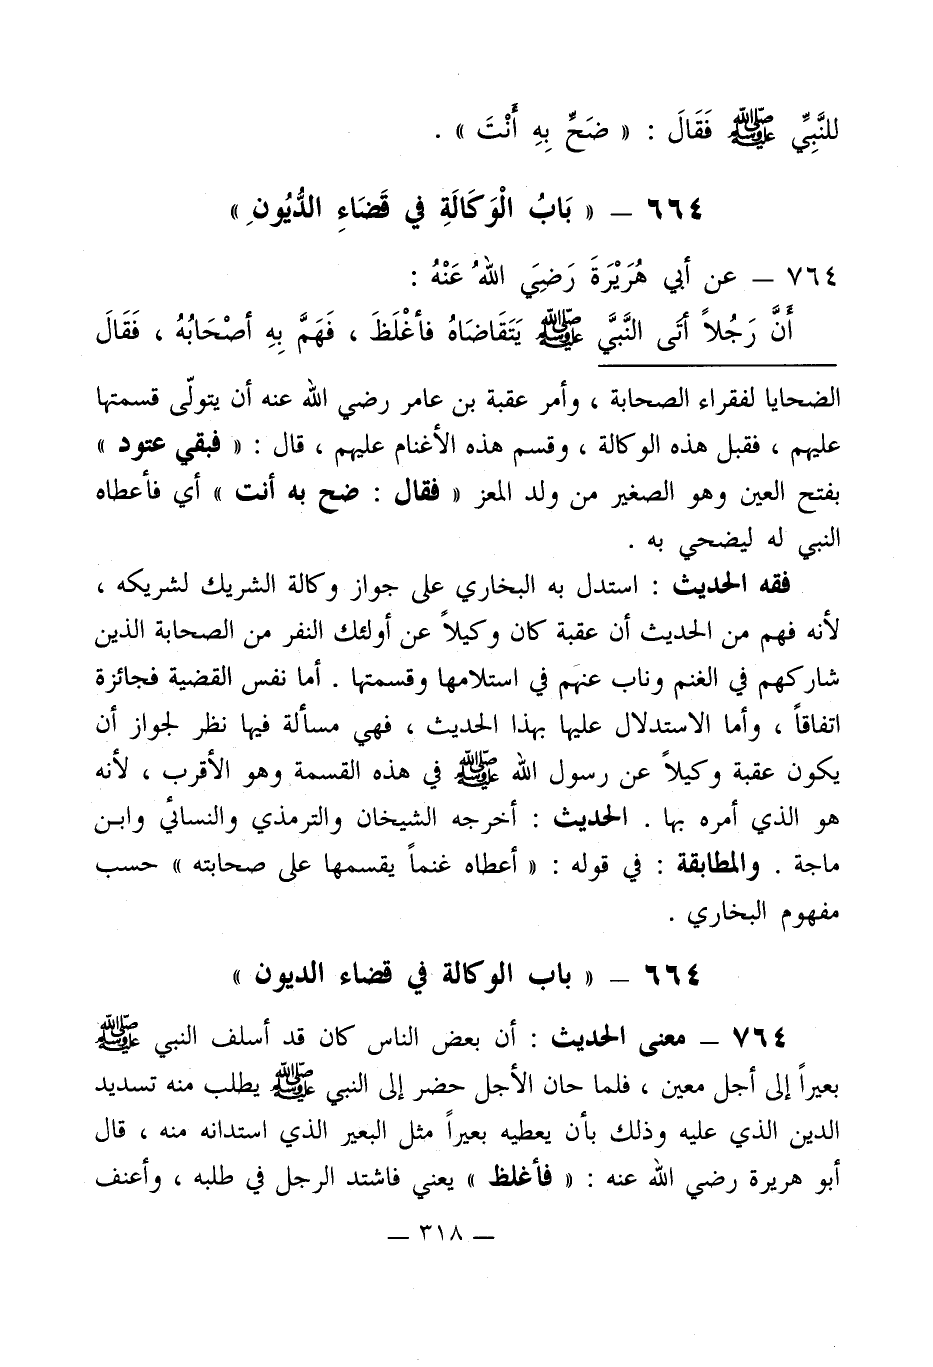 للنَّبِيِّ ﷺ فَقَالَ : « ضَحِّ بِهِ أَنْتَ » .
٦٦٤ – « بَابُ الْوَكَالَةِ في قَضَاءِ الدُّيُونِ »
٧٦٤ – عن أبي هُرَيْرَةَ رَضِيَ اللهُ عَنْهُ :
أَنَّ رَجُلاً أتَى النَّبِيَّ ﷺ يَتَقَاضَاهُ فأغْلَظَ ، فَهَمَّ بِهِ أصْحَابُهُ ، فَقَالَ
الضحايا لفقراء الصحابة ، وأمر عقبة بن عامر رضي الله عنه أن يتولّى قسمتها
عليهم ، فقبل هذه الوكالة ، وقسم هذه الأغنام عليهم ، قال : « فبقي عتود »
بفتح العين وهو الصغير من ولد المعز « فقال : ضح به أنت » أي فأعطاه
النبي له ليضحي به .
فقه الحديث : استدل به البخاري على جواز وكالة الشريك لشريكه ،
لأنه فهم من الحديث أن عقبة كان وكيلاً عن أولئك النفر من الصحابة الذين
شاركهم في الغنم وناب عنهم في استلامها وقسمتها . أما نفس القضية فجائزة
اتفاقاً ، وأما الاستدلال عليها بهذا الحديث ، فهي مسألة فيها نظر لجواز أن
يكون عقبة وكيلاً عن رسول الله ﷺ في هذه القسمة وهو الأقرب ، لأنه
هو الذي أمره بها . الحديث : أخرجه الشيخان والترمذي والنسائي وابن
ماجة . والمطابقة : في قوله : « أعطاه غنماً يقسمها على صحابته » حسب
مفهوم البخاري .
٦٦٤ – « باب الوكالة في قضاء الديون »
٧٦٤ – معنى الحديث : أن بعض الناس كان قد أسلف النبي ﷺ
بعيراً إلى أجل معين ، فلما حان الأجل حضر إلى النبي ﷺ يطلب منه تسديد
الدين الذي عليه وذلك بأن يعطيه بعيراً مثل البعير الذي استدانه منه ، قال
أبو هريرة رضي الله عنه : « فأغلظ » يعني فاشتد الرجل في طلبه ، وأعنف
– ٣١٨ –